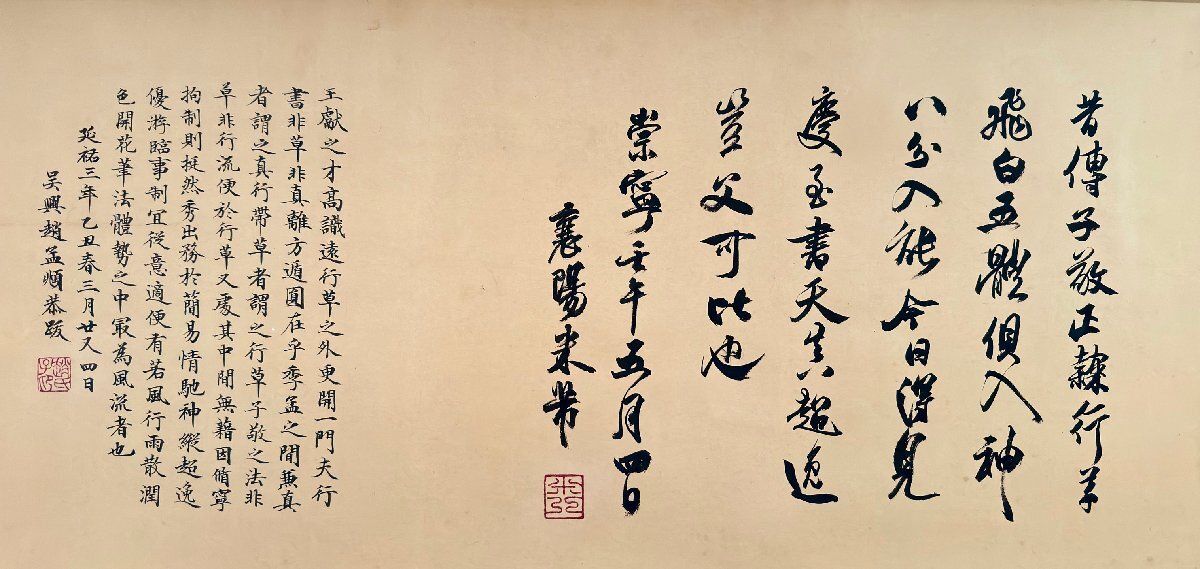 昔傳子敬正隸行草
飛白五體俱入神
八分入能今日得見
慶至書天真超逸
豈父可比也
崇寧壬午五月四日
襄陽米芾
王獻之才高識遠行草之外更開一門夫行
書非草非真離方遁圓在乎季孟之間兼真
者謂之真行帶草者謂之行草子敬之法非
草非行流便於行草又處其中間無藉因循寧
拘制則挺然秀出務於簡易情馳神縱超逸
優游臨事制宜從意適便有若風行雨散潤
色開花筆法體勢之中最為風流者也
延祐三年乙丑春三月廿又四日
吳興趙孟頫恭跋